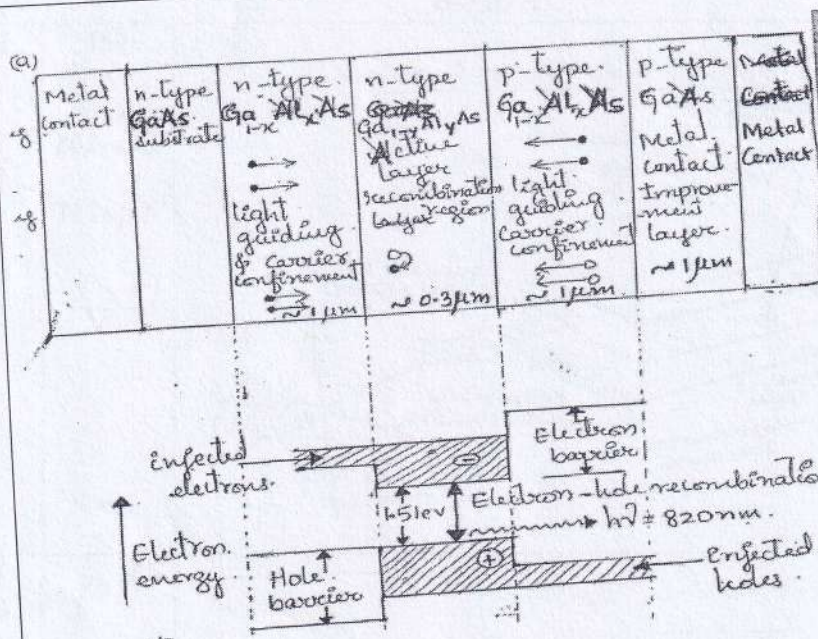 (a)
Metal
contact
n-type
GaAs
substrate
n-type
Ga1-x AlxAs
light
guiding
& carrier
confinement
~ 1μm
n-type
GaAs
Ga1-y AlyAs
Active
layer
recombination
region
~ 0.3μm
p-type
Ga1-x AlxAs
light
guiding
carrier
confinement
~ 1μm
p-type
GaAs
Metal
contact
Improve-
ment
layer.
~ 1μm
Metal
Contact
Metal
Contact
injected
electrons.
Electron
barrier
1.51ev
Electron-hole recombinatio
hν = 820nm.
Electron
energy.
Hole
barrier
Injected
holes.